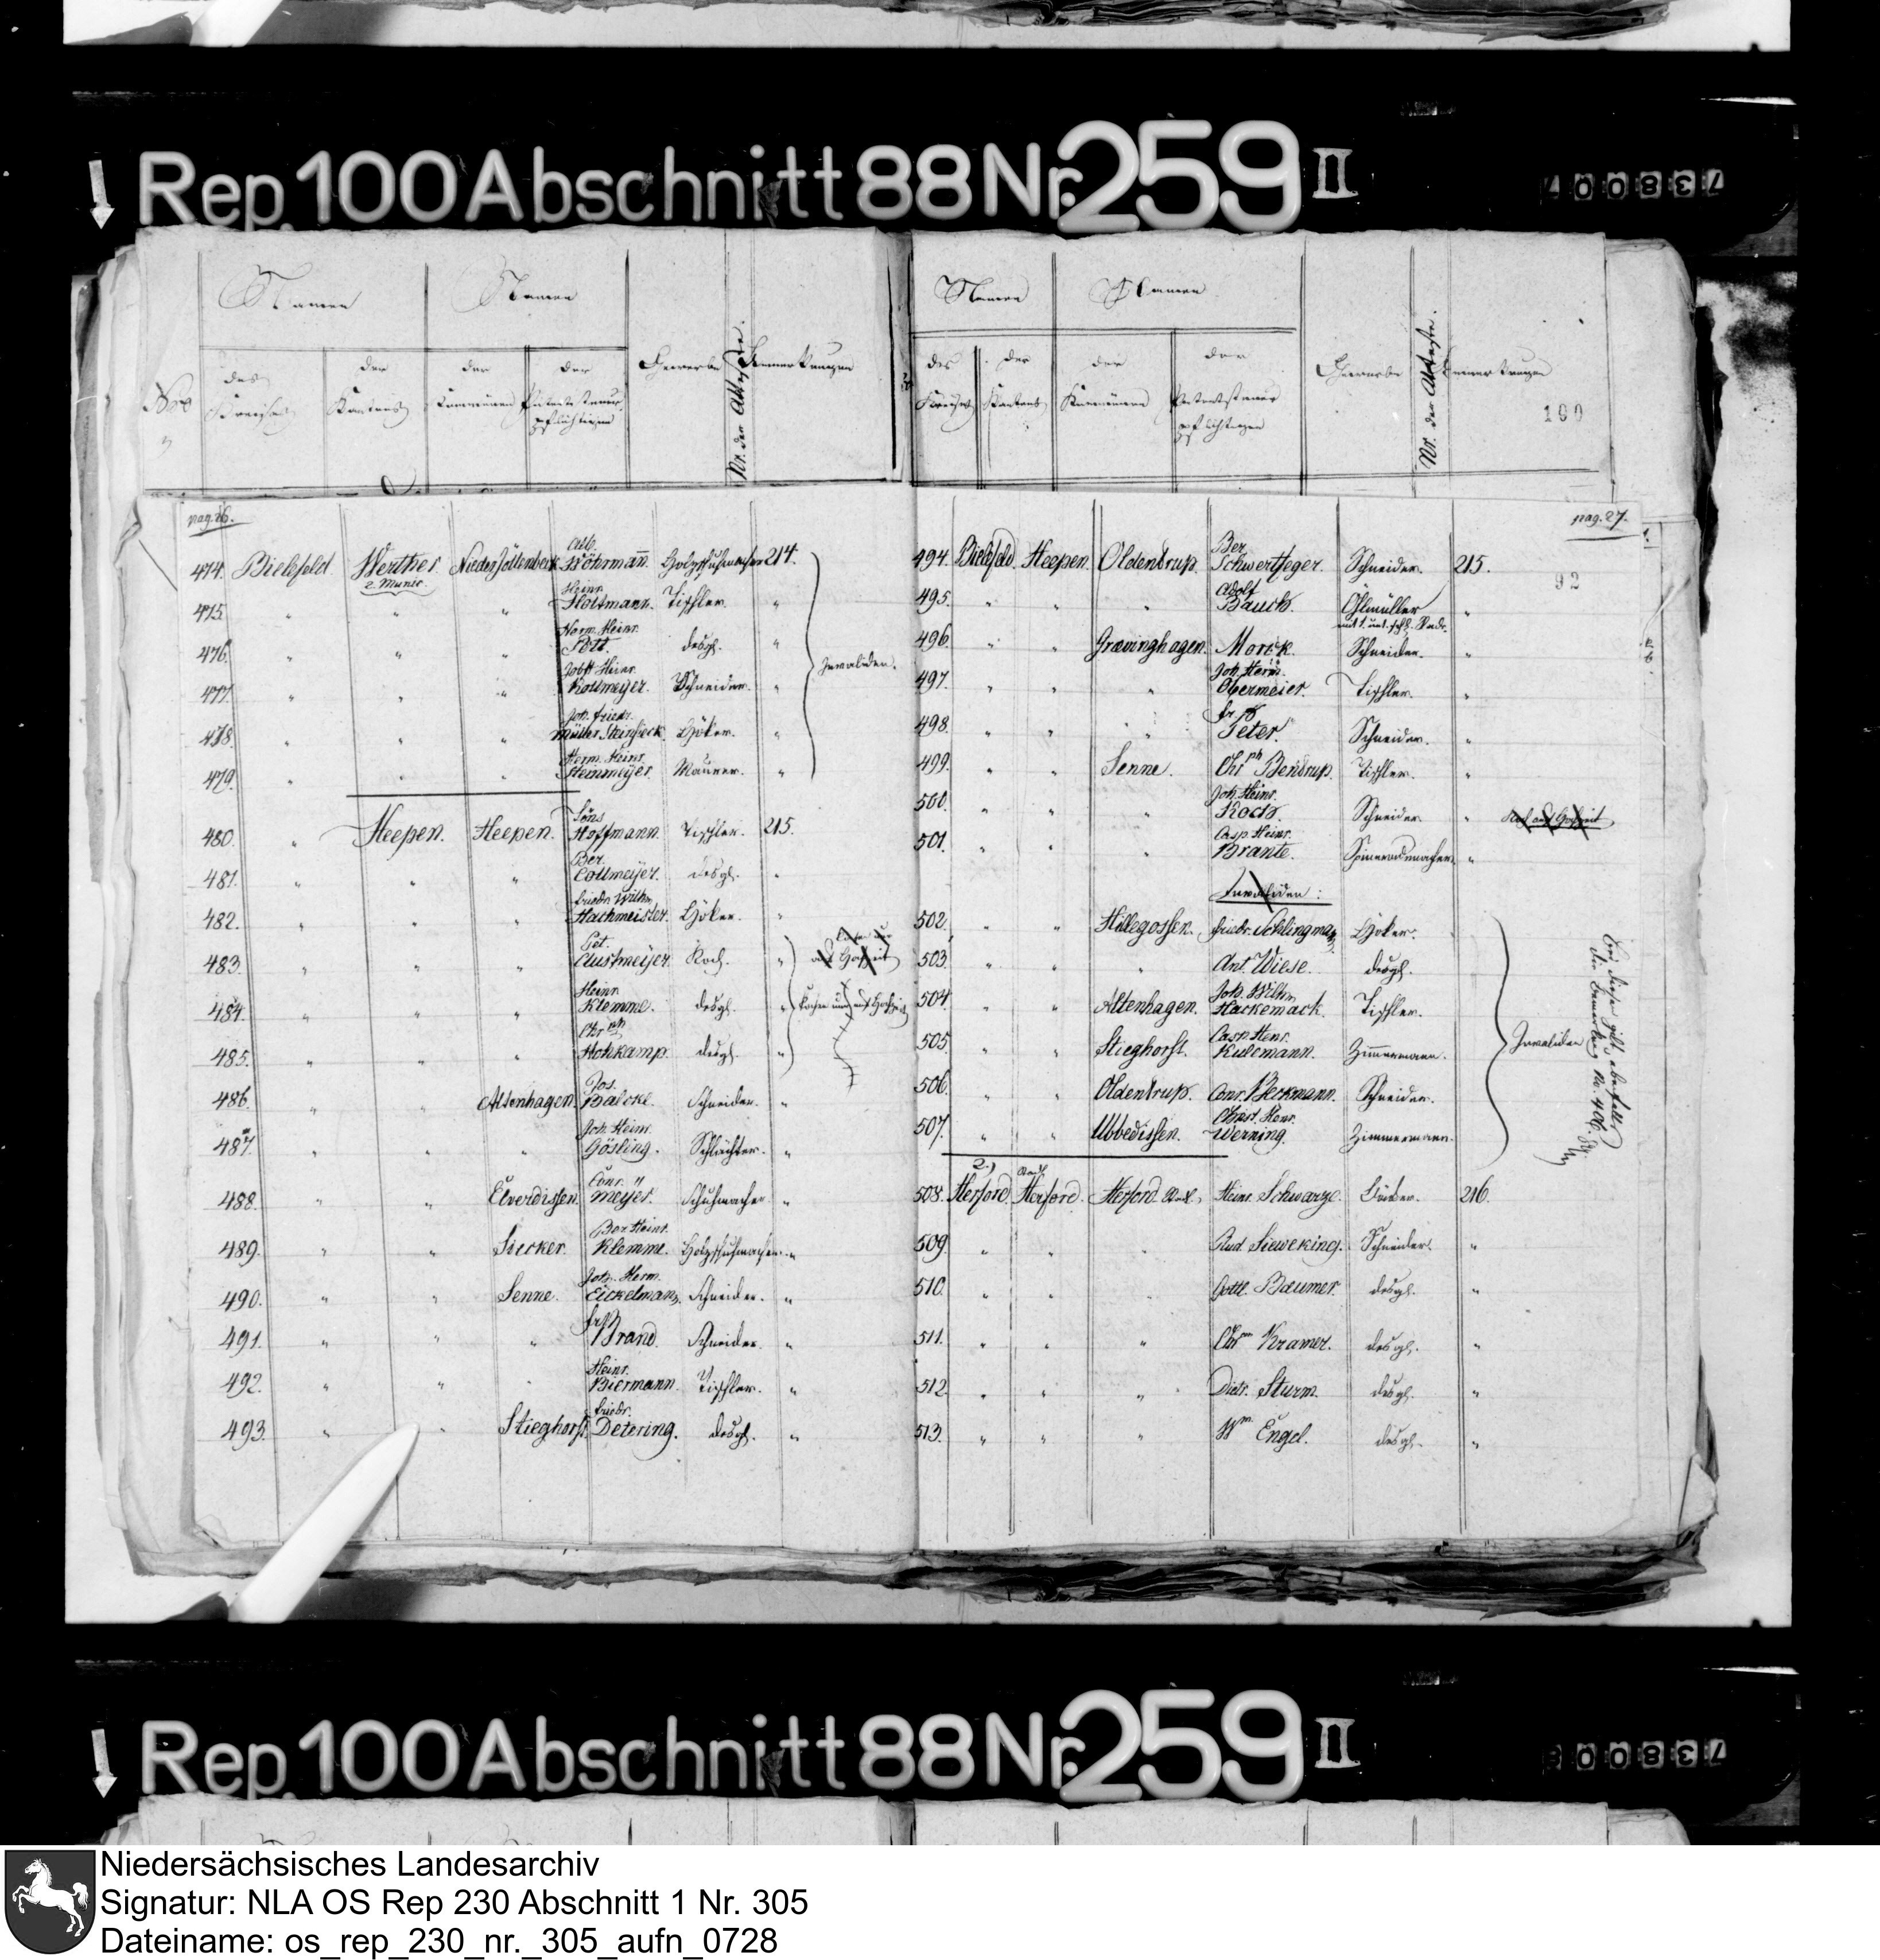 Rep. 100 Abschnitt 88 Nr. 259 II
738007
Namen Namen
Nro des Kreises der Kantons der Kommünen der Patentsteuerpflichtigen Gewerbe Nr. der Atteste. Bemerkungen
Namen Namen
des Kreises der Kantons der Kommünen der Patentsteuerpflichtigen Gewerbe Nr. der Atteste. Bemerkungen
100
pag. 26.
474. Bielefeld Werther 2. Munic. Niederjöllenbeck Wöhrmañ. Holzschuhmacher 214.
475. " " " Heinr. Holtmann. Tischler. "
476. " " " Herm. Heinr. Pott. desgl. "
477. " " " Jobst Heinr. Kollmeyer. Schneider. "
478. " " " Joh. Friedr. Müller Steinsieck. Höker. "
479. " " " Herm. Heinr. Stemmeyer. Maurer. "
Invaliden.
480. " Heepen. Heepen. Hoffmann. Tischler. 215.
481. " " " Ber. Collmeyer. desgl. "
482. " " " Friedr. Wilhm. Hachmeister. Höker. "
483. " " " Pet. Austmeyer. Koch. "
484. " " " Heinr. Klemme. desgl. "
485. " " " Chrph Hohkamp. desgl. "
486. " " Altenhagen. Jos. Balcke. Schneider. "
487. " " " Joh. Heinr. Gösling. Schlächter. "
488. " " Elverdissen. Conr. Meyer. Schuhmacher "
489. " " Siecker. Ber Heinr. Klemme. Holzschuhmacher. "
490. " " Senne. Joh. Herm. Eickelmann. Schneider. "
491. " " " Brand. Schneider. "
492. " " " Heinr. Biermann. Tischler. "
493. " " Stieghorst. Friedr. Detering. desgl. "
pag. 27.
494. Bielefeld Heepen. Oldentrup. Ber Schwertfeger. Schneider. 215.
92
495. " " " Adolf Bauck. Ohlmüller "
496. " " Grævinghagen. Morick. Schneider. "
497. " " " Joh. Herm. Obermeier. Tischler. "
498. " " " Peter. Schneider. "
499. " " Senne. Chrph Bentrup. Tischler. "
500. " " " Joh. Heinr. Koch. Schneider. "
501. " " " Casp. Heinr. Brante. Spinnradmacher. "
Invaliden:
502. " " Hillegossen. Friedr. Schlingmann. Höker.
503. " " " Ant. Wiese. desgl.
504. " " Altenhagen. Joh. Wilhm. Hackemack. Tischler.
505. " " Stieghorst. Casp. Henr. Kulemann. Zimmermann.
506. " " Oldentrup. Conr. Beckmann. Schneider.
507. " " Ubbedissen. Christ. Henr. Werning. Zimmermann.
Invaliden
Für diese gilt ebenfalls die Bemerkung No. 406.
2.)
508. Herford Stadt Herford. Herford Stadt. Heinr. Schwarze. 216.
509. " " " Rud. Sieweking. Schneider. "
510. " " " Gottl. Baumer. desgl. "
511. " " " Kramer. desgl. "
512. " " " Dietr. Sturm. desgl. "
513. " " " Wm. Engel. desgl. "
Rep. 100 Abschnitt 88 Nr. 259 II
Niedersächsisches Landesarchiv
Signatur: NLA OS Rep 230 Abschnitt 1 Nr. 305
Dateiname: os_rep_230_nr._305_aufn_0728